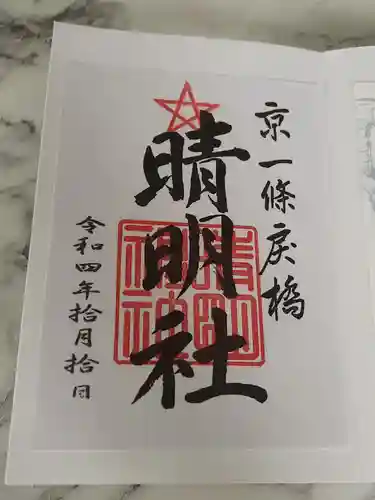 京一條戻橋
晴明社
令和四年拾月拾日